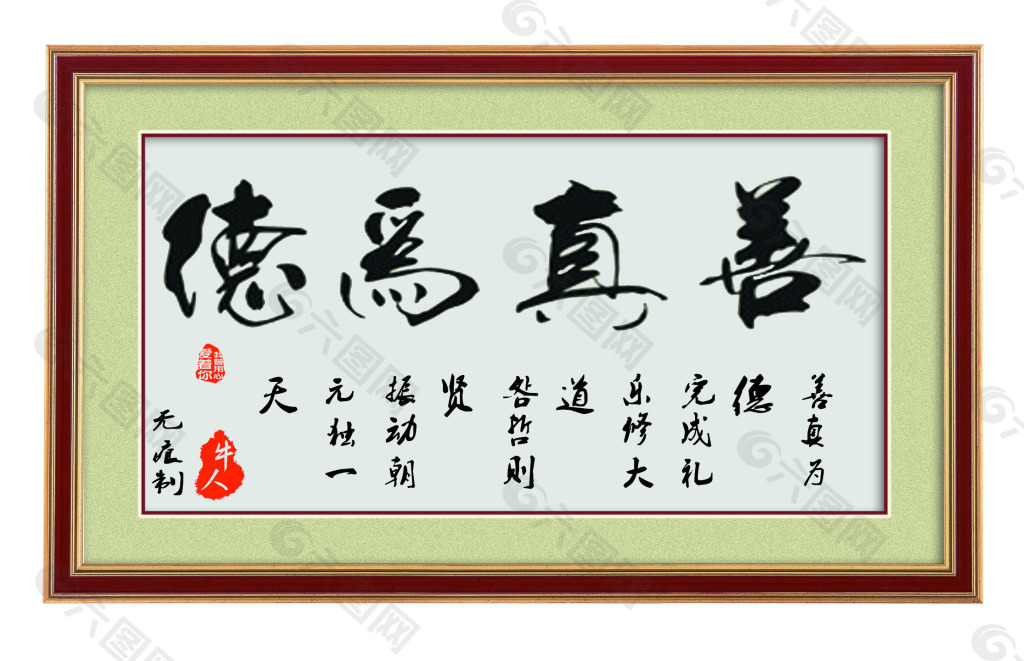 善真為德
善真为
德
完成礼
乐修大
道
哲则
贤
振动朝
元独一
天
无痕制
牛人
六图网